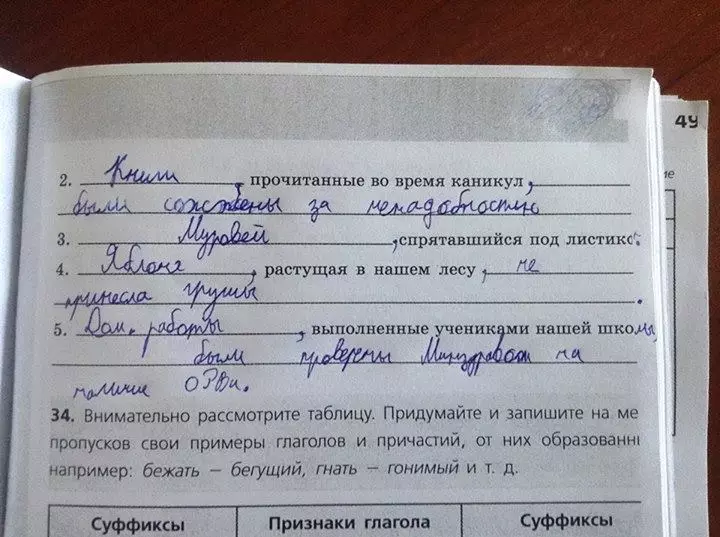 49
ие
2. Книги, прочитанные во время каникул,
были сожжены за ненадобностью
3. Муравей, спрятавшийся под листико.
4. Яблоня, растущая в нашем лесу, не
принесла груши.
5. Дом. работы, выполненные учениками нашей школы,
были проверены Минздравом на
наличие ОРВи.
34. Внимательно рассмотрите таблицу. Придумайте и запишите на ме
пропусков свои примеры глаголов и причастий, от них образованн
например: бежать – бегущий, гнать – гонимый и т. д.
Суффиксы Признаки глагола Суффиксы